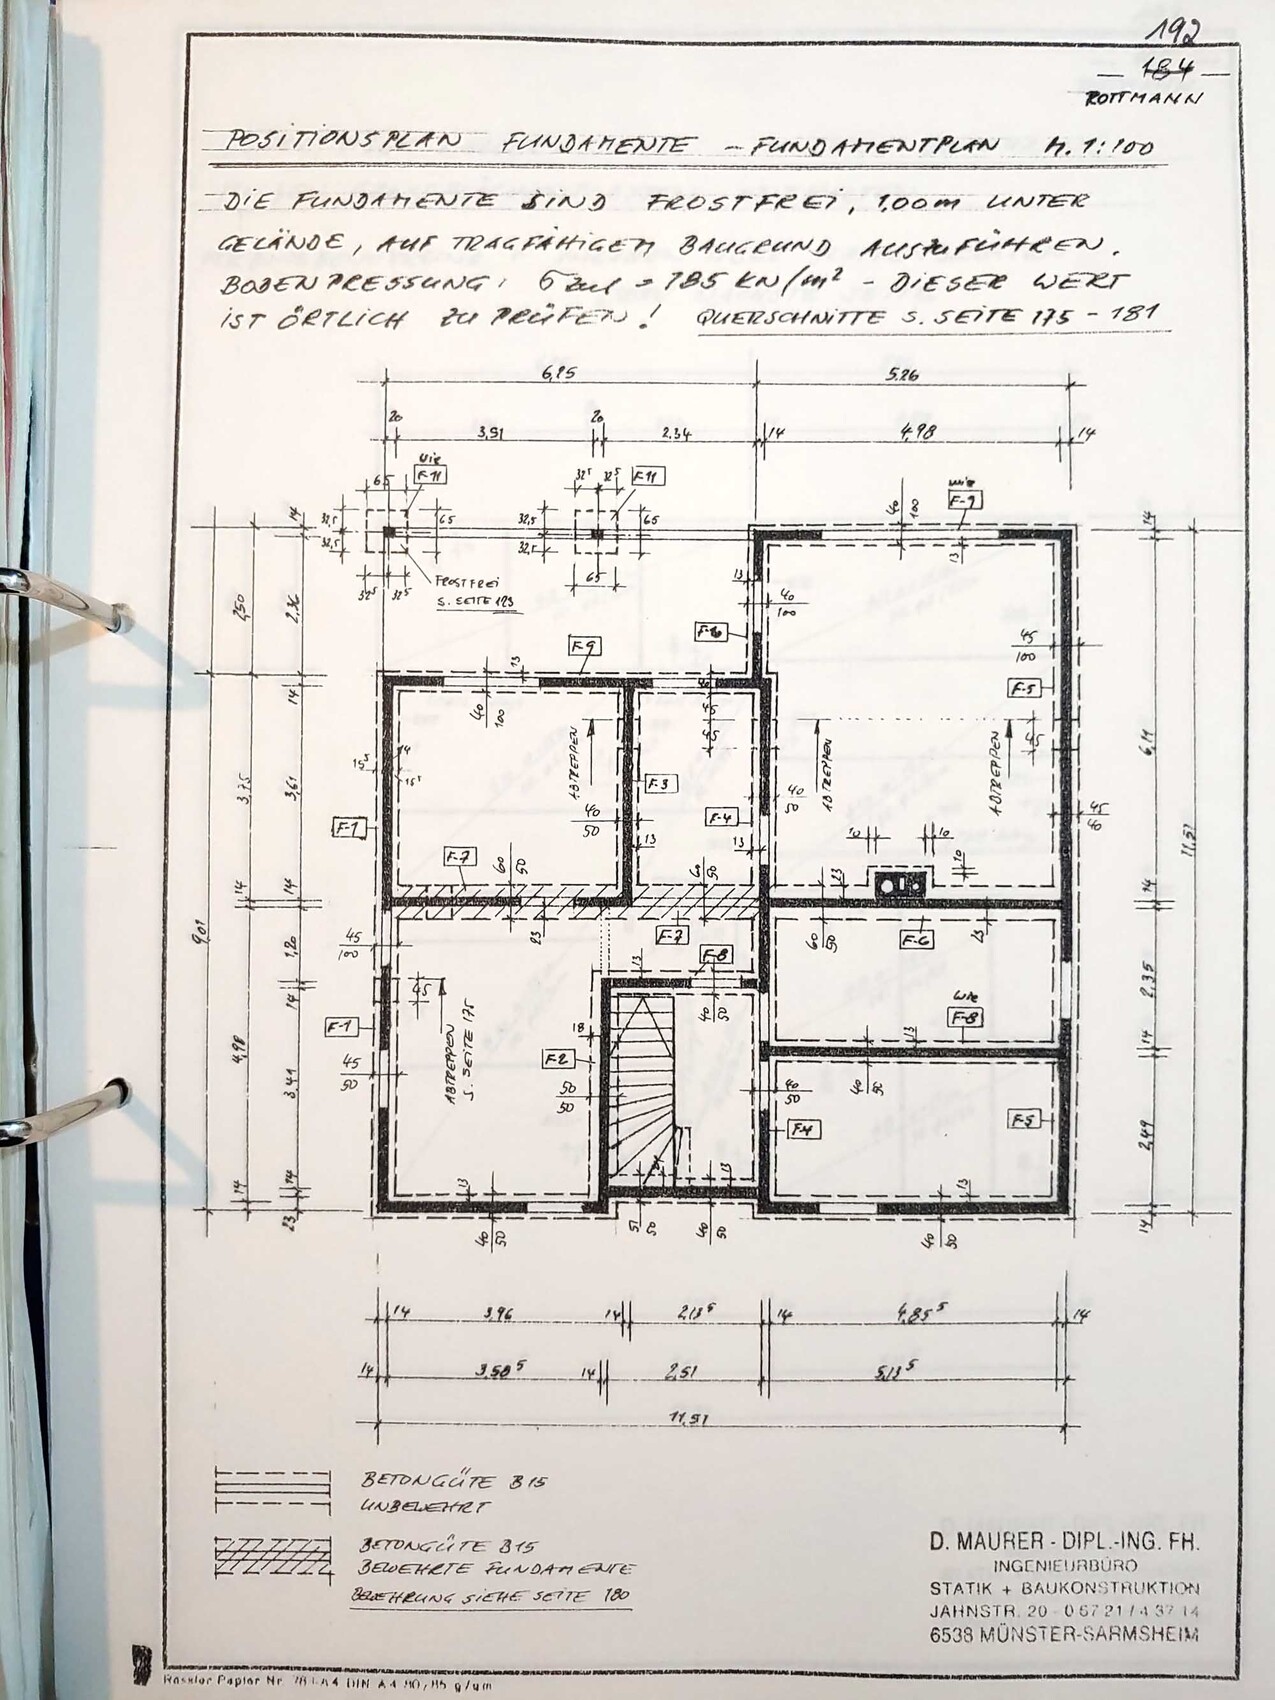 192
184
ROTTMANN
POSITIONSPLAN FUNDAMENTE - FUNDAMENTPLAN M. 1:100
DIE FUNDAMENTE SIND FROSTFREI, 1,00m UNTER
GELÄNDE, AUF TRAGFÄHIGEM BAUGRUND AUSZUFÜHREN.
BODENPRESSUNG: σ zul = 185 KN/m² - DIESER WERT
IST ÖRTLICH ZU PRÜFEN! QUERSCHNITTE S. SEITE 175 - 181
5.26
20 20
3,51 2,34 14 4,98 14
wie
F-11 F-11
65 32⁵ 32⁵
wie
F-9
40 100
14
32,5 65 32,5 65
32,5 32,5
13
14
65
32⁵ 32⁵
FROSTFREI
S. SEITE 123
2,50 2,36
13
40
100
F-10
45
100
F-9 13
F-5
40 100
14
ABTREPPEN
ABTREPPEN
ABTREPPEN
6,11
3,75 3,61
15⁵
F-3
40
50
45
40
F-1
40
50
F-4
13 13
10 10
10
11,51
F-7
60 50
60 50
13
14 14
14
9,01
23
F-7
60 50
F-6
13
45
100
1,20
F-8
13
2,35
wie
F-8
45
14
40 50
F-1
18
F-2
13
14
ABTREPPEN
S. SEITE 175
4,98
45
50
3,41
50
50
40
50
40 50
F-4
F-5
2,49
13
13
13
14 14
23
40 50
51 50
40 50
40 50
14
14 3,96 14 2,13⁵ 14 4,85⁵ 14
14 3,58⁵ 14 2,51 5,13⁵
11,51
BETONGÜTE B15
UNBEWEHRT
BETONGÜTE B15
BEWEHRTE FUNDAMENTE
BEWEHRUNG SIEHE SEITE 180
D. MAURER - DIPL.-ING. FH.
INGENIEURBÜRO
STATIK + BAUKONSTRUKTION
JAHNSTR. 20 - 0 67 21 / 4 37 14
6538 MÜNSTER-SARMSHEIM